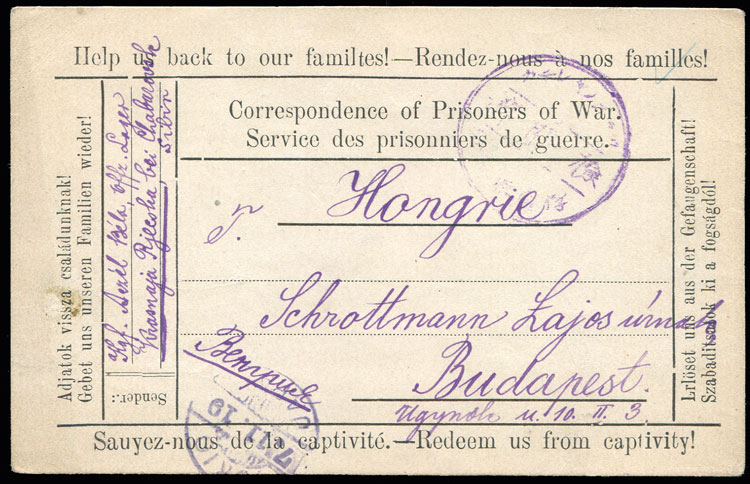 Help us back to our familtes!—Rendez-nous à nos familles!
Correspondence of Prisoners of War.
Service des prisonniers de guerre.
Hongrie
T.
Schrottmann Lajos úrnak
Budapest.
Ugynök u. 10. II. 3
Венгрия
Adjatok vissza családunknak!
Gebet uns unseren Familien wieder!
Sender:
Aczél Béla, Off. Lager
Krasnaja Rjecska, bei Chabarovsk
Sibir
Erlöset uns aus der Gefaugenschaft!
Szabaditsatok ki a fogságdól!
TOKIO
7.11.19
Sauyez-nous de la captivité.—Redeem us from captivity!